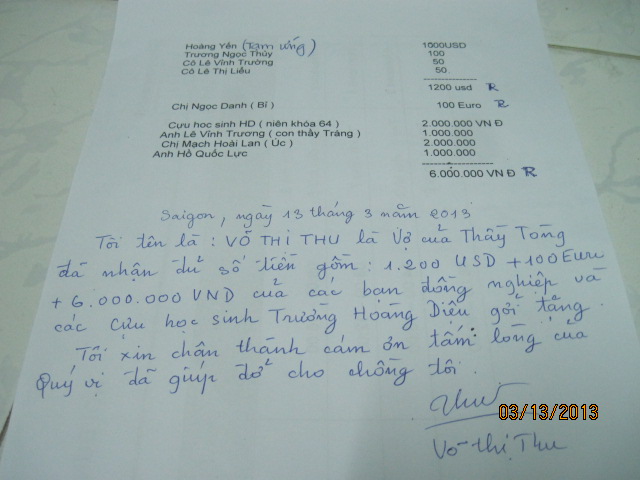 Hoàng Yến (Tạm ứng) 1000USD
Trương Ngọc Thủy 100
Cô Lê Vĩnh Trường 50
Cô Lê Thị Liễu 50.
1200 usd R
Chị Ngọc Danh ( Bỉ ) 100 Euro R
Cựu học sinh HD ( niên khóa 64 ) 2.000.000 VN Đ
Anh Lê Vĩnh Trương ( con thầy Tráng ) 1.000.000
Chị Mạch Hoài Lan ( Úc ) 2.000.000
Anh Hồ Quốc Lực 1.000.000
6.000.000 VN Đ R
Saigon, ngày 13 tháng 3 năm 2013
Tôi tên là : VÕ THỊ THU là Vợ của Thầy Tòng
đã nhận đủ số tiền gồm : 1.200 USD + 100 Euro
+ 6.000.000 VND của các bạn đồng nghiệp và
các cựu học sinh Trường Hoàng Diệu gởi tặng.
Tôi xin chân thành cám ơn tấm lòng của
Quý vị đã giúp đở cho chồng tôi.
Thu
03/13/2013
Võ thị Thu